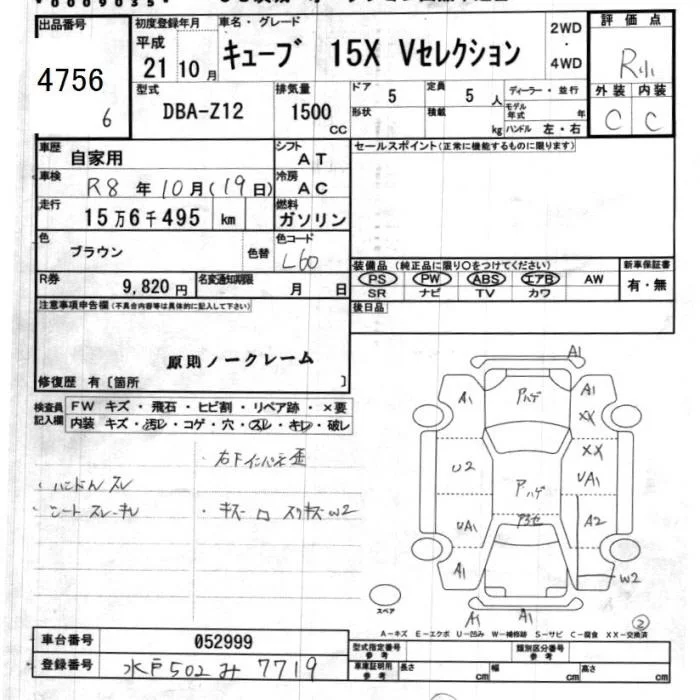 出品番号
4756
6
初度登録年月
平成
21 10 月
車名・グレード
キューブ 15X Vセレクション
2WD
・
4WD
評価点
R小
外装 内装
C C
型式
DBA-Z12
排気量
1500
CC
ドア
5
定員
5 人
形状
積載
kg
ディーラー・並行
モデル年式 年
ハンドル 左・右
車歴
自家用
シフト
AT
車検
R8 年 10 月 (19 日)
冷房
AC
走行
15万6千495 km
燃料
ガソリン
色
ブラウン
色替
色コード
L60
R券
9,820 円
名変通知期限
月 日
セールスポイント(正常に機能するものに限ります)
装備品(純正品に限り〇をつけてください)
PS PW ABS エアB AW
SR ナビ TV カワ
新車保証書
有・無
後日品
注意事項申告欄(不具合内容等は具体的に記入して下さい)
原則ノークレーム
修復歴 有〔箇所 〕
検査員記入欄
FW キズ・飛石・ヒビ割・リペア跡・×要
内装 キズ・汚レ・コゲ・穴・スレ・キレ・破レ
・ハンドルスレ
・シートスレ・キレ
・右Fインパネ歪
A1
A1
アハゲ
A1
XX
XX
U2
アハゲ
UA1
UA1
A2
A1
W2
A1
A1
スペア
2
A-キズ E-エクボ U-凹み W-補修跡 S-サビ C-腐食 XX-交換済
車台番号
052999
登録番号
水戸502み7719
型式指定番号
参考
類別区分番号
参考
車庫証明用
参考
長さ cm
幅 cm
高さ cm